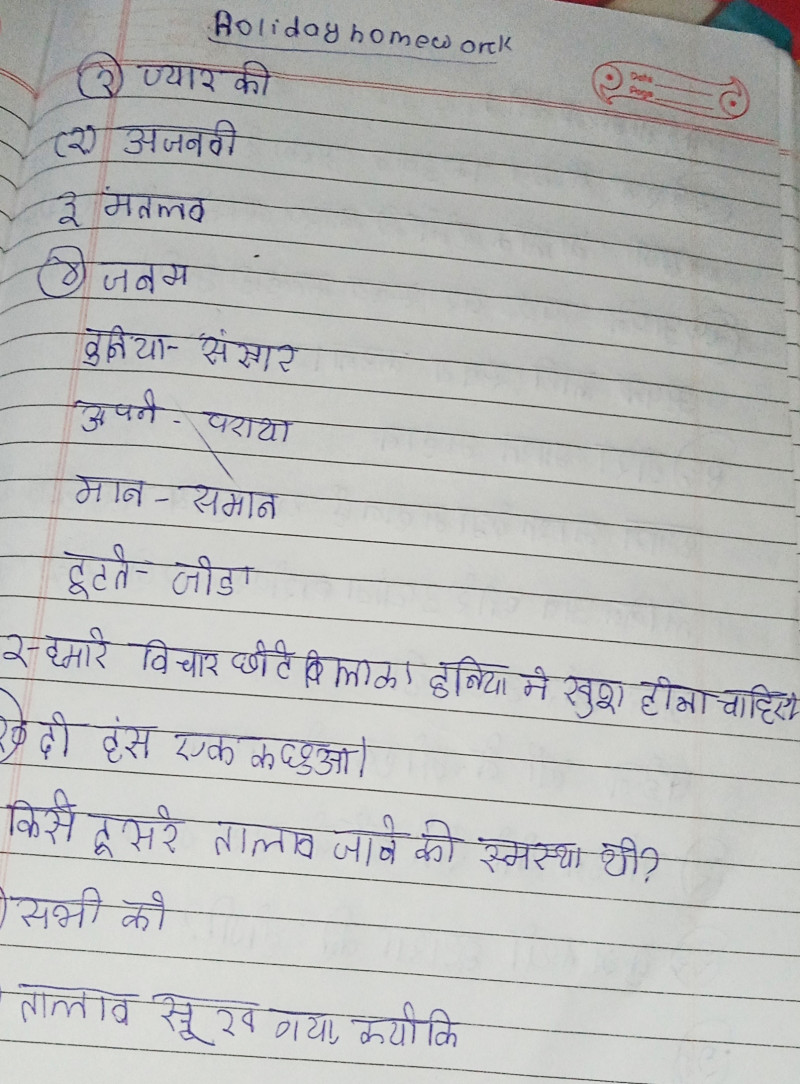 Holiday homework
Date
Page
(१) प्यार की
(२) अजनवी
३ मतलव
(४) जनम
दुनिया- संसार
अपने - पराया
मान - समान
टूटते- जोडा
२- हमारे विचार छोटे दुनिया मे खुश होना चाहिए
दो हंस एक कछुआ।
किसे दूसरे तालाव जाने की स्मस्या थी?
सभी को
तालाव सूख गया, क्योकि